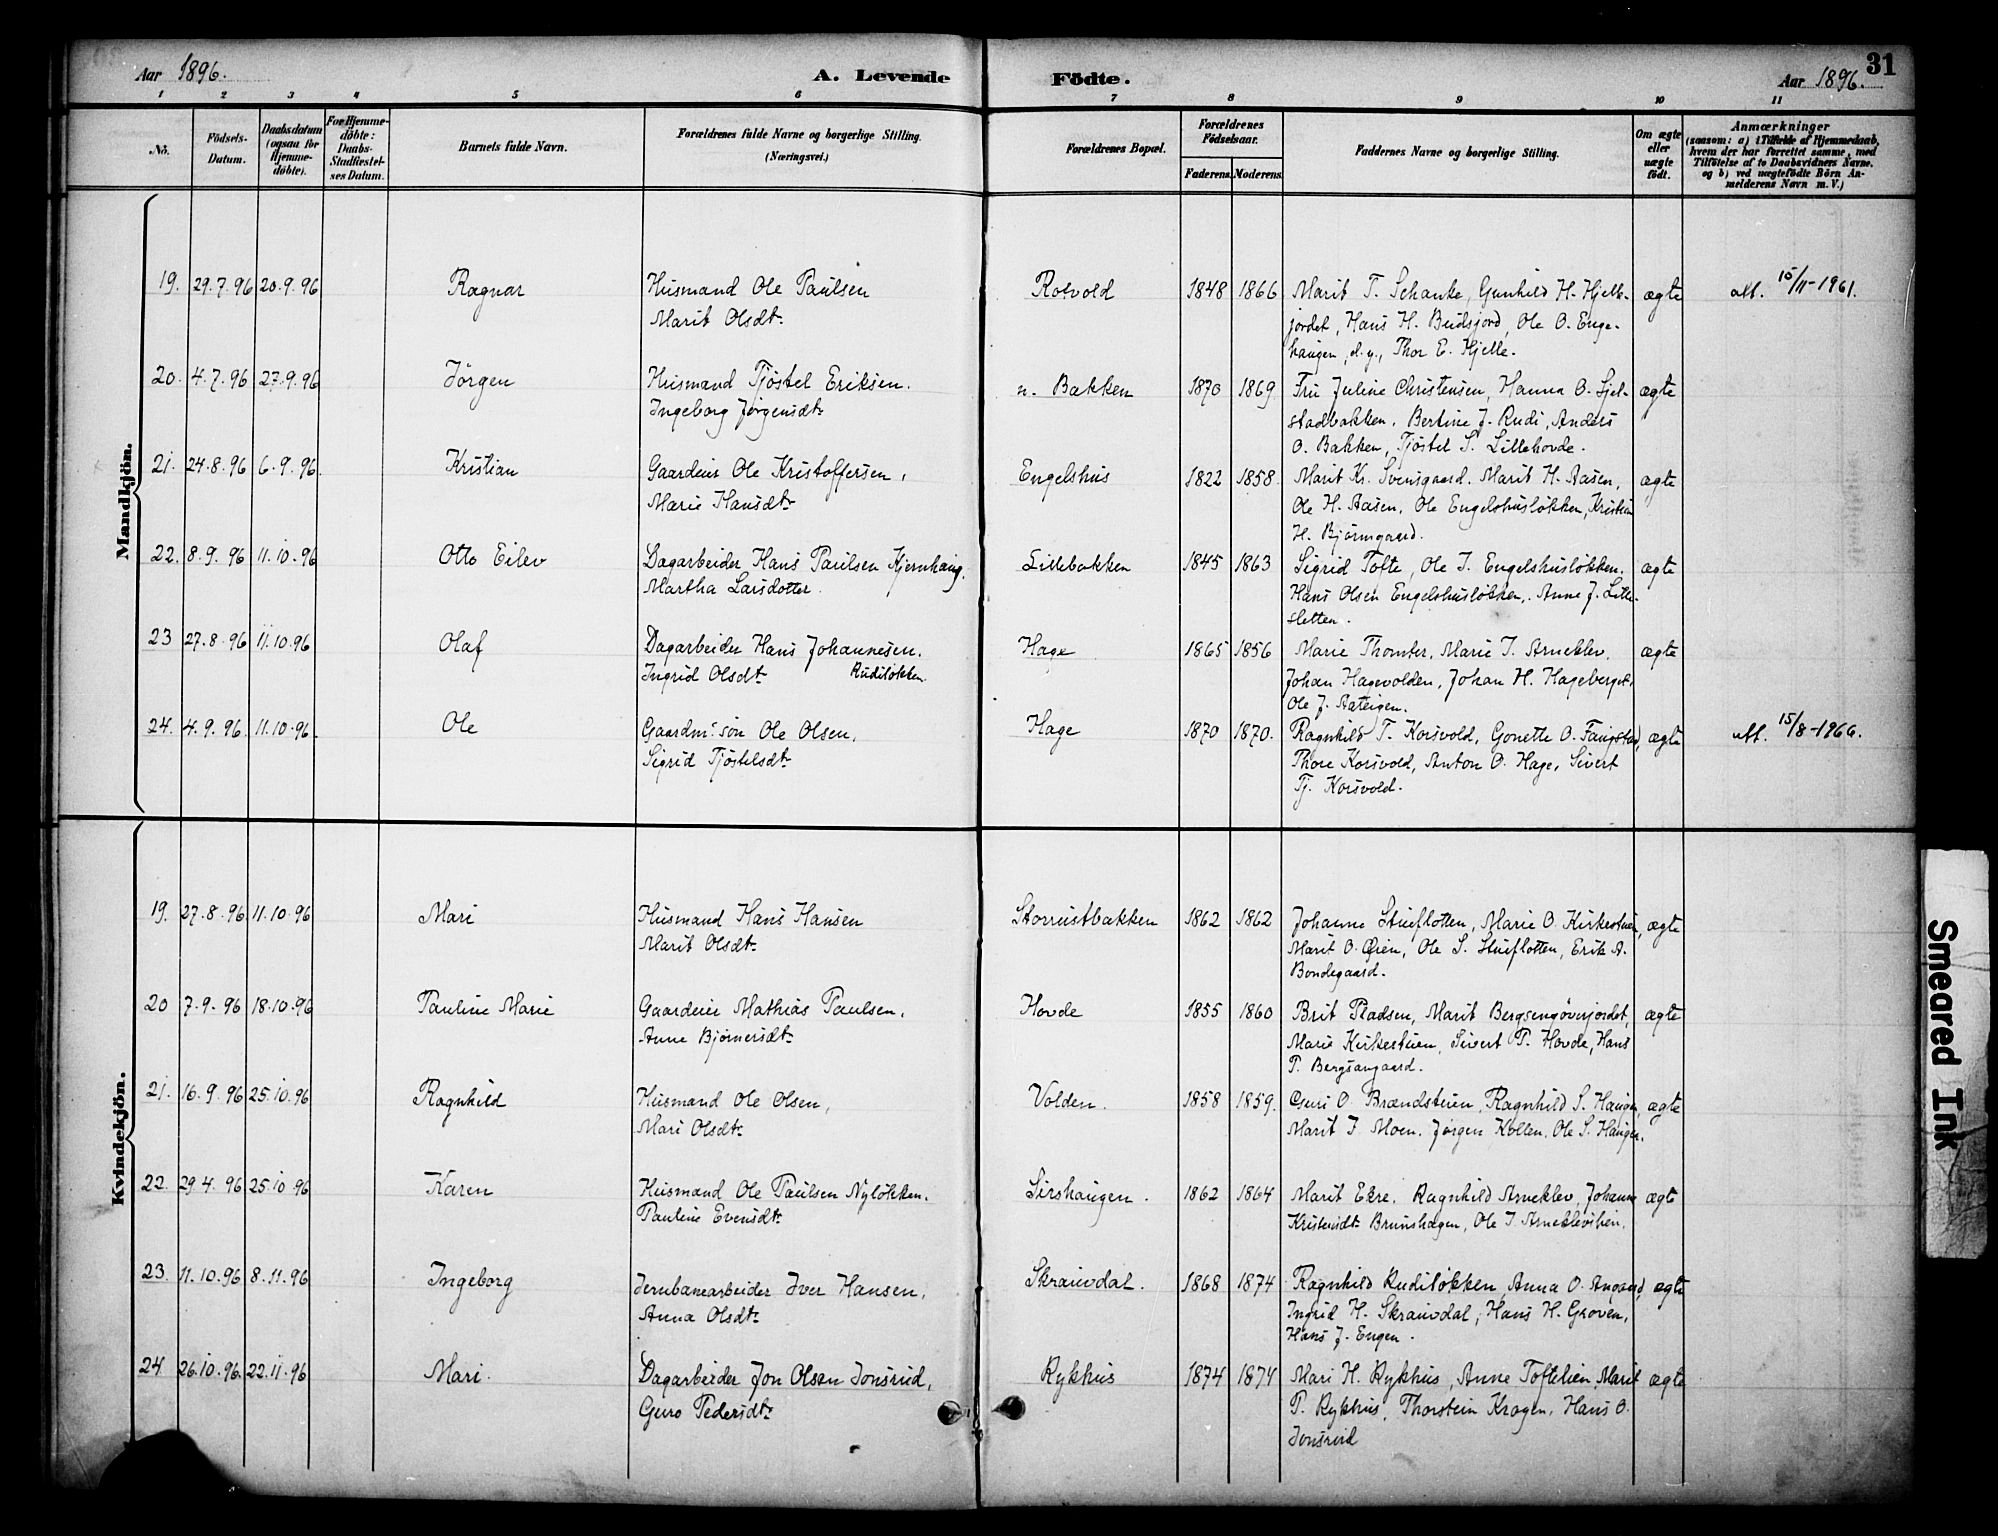 Aar 1896.
A. Levende Födte.
Aar 1896.
31
1 2 3 4 5 6 7 8 9 10 11
No.
Födsels-Datum.
Daabsdatum (ogsaa for Hjemme-döbte).
For Hjemme-döbte: Daabs-Stadfæstel-ses Datum.
Barnets fulde Navn.
Forældrenes fulde Navne og borgerlige Stilling. (Næringsvei.)
Forældrenes Bopæl.
Forældrenes Födselsaar.
Faderens. Moderens.
Faddernes Navne og borgerlige Stilling.
Om ægte eller uægte födt.
Anmærkninger
(saasom: a) i Tilfælde af Hjemmedaab, hvem der har forrettet samme, med Tilföielse af to Daabsvidners Navne, og b) ved uægtefödte Börn An-melderens Navn m. V.)
Mandkjön.
19. 29.7.96 20.9.96 Ragnar Husmand Ole Paulsen Rolvold 1848 1866 Marit T. Schanke, Gunhild H. Hjelle- ægte att. 15/11-1961.
Marit Olsdt. jordet, Hans H. Budsjord, Ole O. Enge-
haugen, d.y., Thor E. Hjelle.
20. 4.7.96 27.9.96 Jörgen Husmand Tjöstel Eriksen. n. Bakken 1870 1869 Fru Juline Christensen, Hanna O. Sjel- ægte
Ingeborg Jørgensdt. stadbakken. Bertine J. Rudi, Anders
O. Bakken, Tjöstel S. Lillehovde.
21. 24.8.96 6.9.96. Kristian Gaardeier Ole Kristoffersen, Engelshus 1822 1858 Marit Kr. Svensgaard. Marit H. Aasen, ægte
Marie Hansdt. Ole H. Aasen, Ole Engelshusløkken, Kristian
H. Bjørnsgaard.
22. 8.9.96 11.10.96 Otto Eilev Dagarbeider Hans Paulsen Kjernhaug. Lillebakken 1845 1863 Sigrid Tofte, Ole I. Engelshusløkken. ægte
Martha Larsdotter. Hans Olsen Engelshusløkken,. Anne J. Lille-
sletten.
23 27.8.96 11.10.96 Olaf Dagarbeider Hans Johannesen. Hage 1865 1856 Marie Thomter, Marie I. Arneklev. ægte
Ingrid Olsdt. Rudiløkken. Johan Hagevolden, Johan H. Hageberget,
Ole J. Aateigen.
24. 4.9.96. 11.10.96. Ole Gaardm. søn Ole Olsen, Hage 1870 1870. Ragnhild T. Korsvold, Gonette O. Fangstad, ægte att. 15/8-1966.
Sigrid Tjøstelsdt. Thore Korsvold, Anton O. Hage, Sivert
Tj. Korsvold.
Kvindekjön.
19. 27.8.96. 11.10.96 Mari Husmand Hans Hansen Storrustbakken 1862 1862 Johanne Stueflotten, Marie O. Kirkestuen, ægte
Marit Olsdt. Marit O. Øien, Ole S. Stueflotten, Erik A.
Bondegaard.
20 7.9.96 18.10.96 Pauline Marie Gaardeier Mathias Paulsen. Hovde 1855 1860 Brit Pladsen, Marit Bergsengøverjordet, ægte
Anne Bjørnersdt. Marie Kirkestuen, Sivert P. Hovde, Hans
P. Bergsangaard.
21. 16.9.96 25.10.96 Ragnhild Husmand Ole Olsen, Volden. 1858 1859. Guri O. Brændstuen, Ragnhild S. Haugen, ægte
Mari Olsdt. Marit I. Moen. Jørgen Kollen. Ole S. Haugen.
22. 29.4.96 25.10.96 Karen Husmand Ole Paulsen Nyløkken. Sirshaugen. 1862 1864 Marit Ekre. Ragnhild Arneklev, Johanne ægte
Pauline Evensdt. Kristensdt. Brunshagen, Ole I. Arneklevshien.
23. 11.10.96 8.11.96 Ingeborg Jernbanearbeider Iver Hansen, Skrauvdal. 1868 1874 Ragnhild Rudiløkken, Anna O. Angard, ægte
Anna Olsdt. Ingrid H. Skrauvdal, Hans H. Groven,
Hans J. Engen.
24. 26.10.96. 22.11.96 Mari. Dagarbeider Jon Olsen Jonsrud, Rykhus 1874 1874 Mari H. Rykhus, Anne Toftelien, Marit ægte
Guro Pedersdt. P. Rykhus, Thorstein Kragen. Hans O.
Jonsrud
Smeared Ink